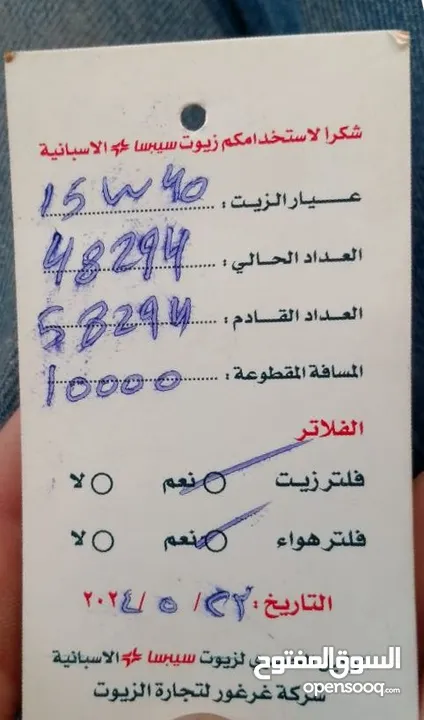 شكرا لاستخدامكم زيوت سيبسا الاسبانية
عيار الزيت : 15W40
العداد الحالي : 48294
العداد القادم : 58294
المسافة المقطوعة : 10000
الفلاتر
فلتر زيت نعم لا
فلتر هواء نعم لا
التاريخ : ٢٣ / ٥ / ٢٠٢٤
لزيوت سيبسا الاسبانية
شركة غرغور لتجارة الزيوت
السوق المفتوح
opensooq.com